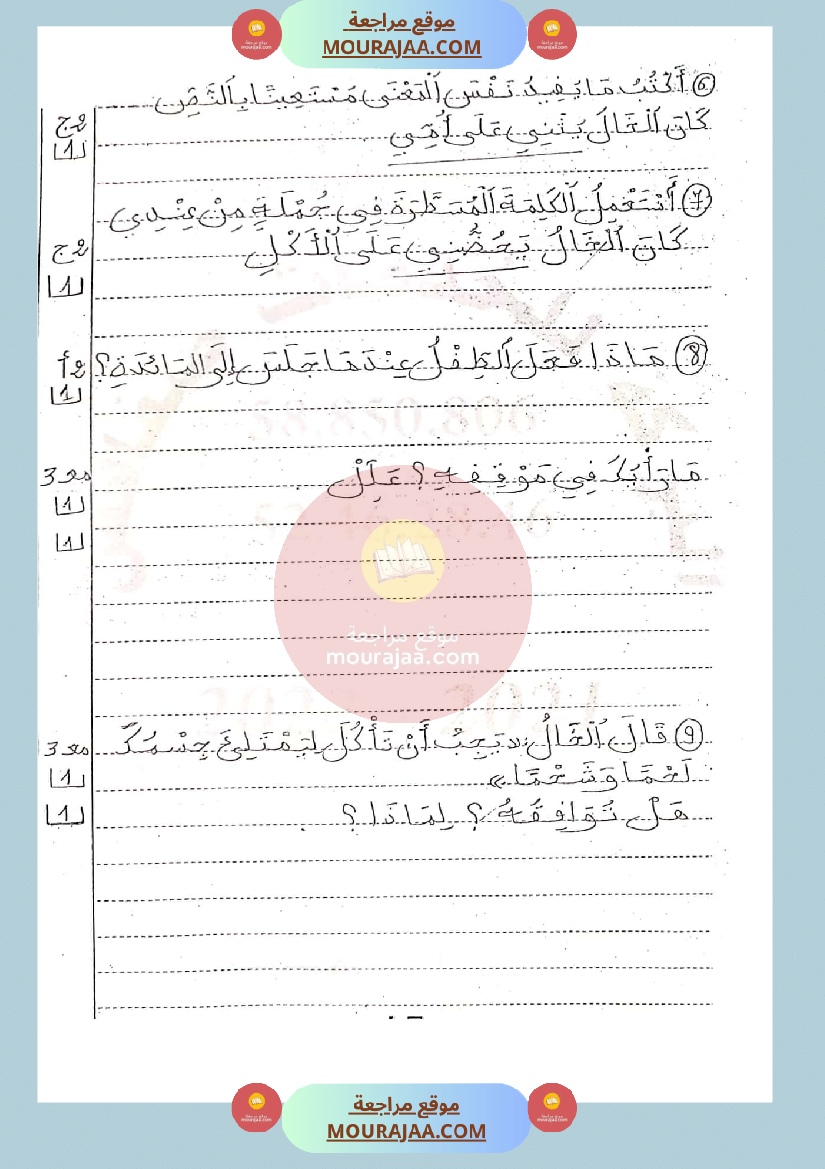 موقع مراجعة
MOURAJAA.COM
6 أَكْتُبُ مَا يُفِيدُ نَفْسَ الْمَعْنَى مُسْتَعِينًا بِالنَّصِّ
كَانَ الْخَالُ يُثْنِي عَلَى أُمِّي
[1]
7 أَسْتَعْمِلُ الْكَلِمَةَ الْمُسَطَّرَةَ فِي جُمْلَةٍ مِنْ عِنْدِي
كَانَ الْخَالُ يَحُضُّنِي عَلَى الْأَكْلِ
[1]
8 مَاذَا فَعَلَ الطِّفْلُ عِنْدَمَا جَلَسَ إِلَى المَائِدَةِ؟
[1]
مع 3 مَا رَأْيُكَ فِي مَوْقِفِهِ؟ عَلِّلْ
[1]
[1]
موقع مراجعة
mourajaa.com
مع 3 9 قَالَ الْخَالُ: «يَجِبُ أَنْ تَأْكُلَ لِيَمْتَلِئَ جِسْمُكَ
[1] لَحْمًا وَشَحْمًا»
[1] هَلْ تُوَافِقُهُ؟ لِمَاذَا؟
موقع مراجعة
MOURAJAA.COM